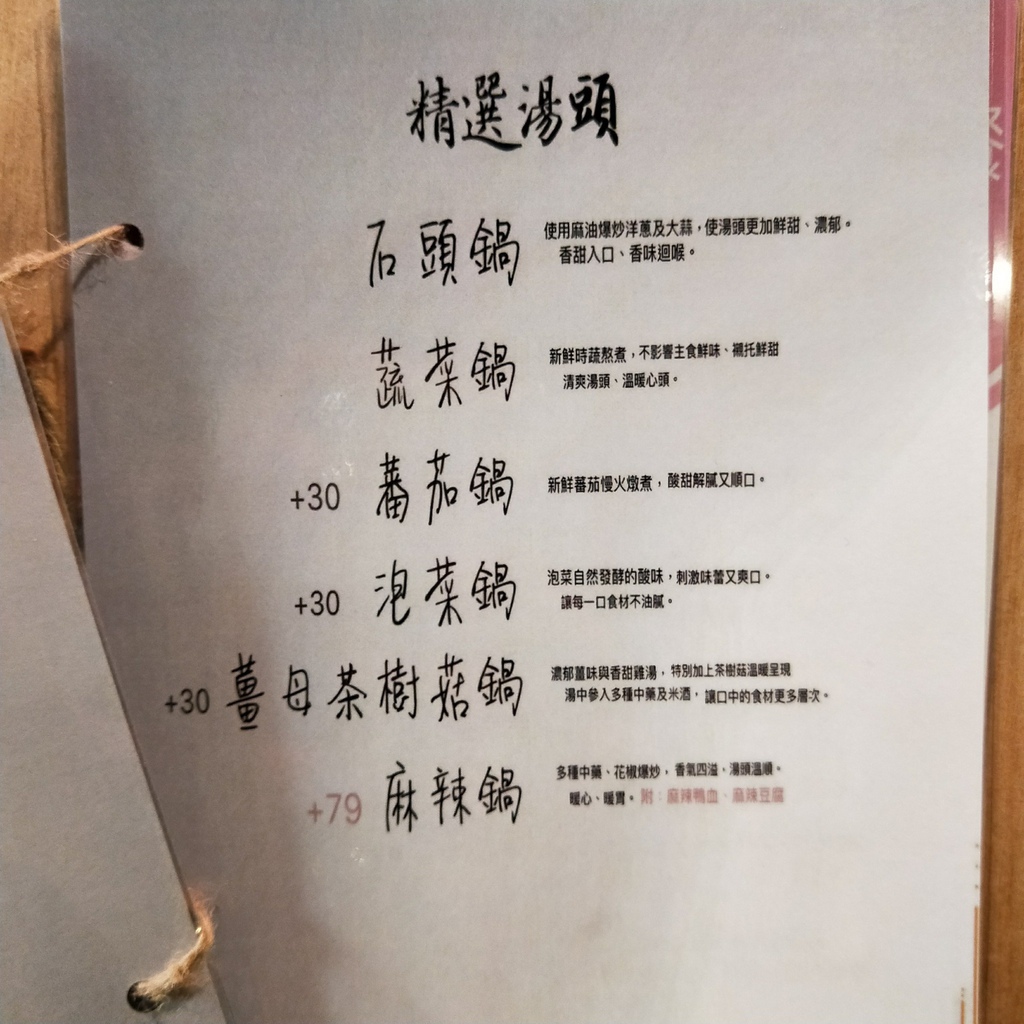 精選湯頭
石頭鍋
使用麻油爆炒洋蔥及大蒜，使湯頭更加鮮甜、濃郁。
香甜入口、香味迴喉。
蔬菜鍋
新鮮時蔬熬煮，不影響主食鮮味、襯托鮮甜
清爽湯頭、溫暖心頭。
+30 蕃茄鍋
新鮮蕃茄慢火燉煮，酸甜解膩又順口。
+30 泡菜鍋
泡菜自然發酵的酸味，刺激味蕾又爽口。
讓每一口食材不油膩。
+30 薑母茶樹菇鍋
濃郁薑味與香甜雞湯，特別加上茶樹菇溫暖呈現
湯中參入多種中藥及米酒，讓口中的食材更多層次。
+79 麻辣鍋
多種中藥、花椒爆炒，香氣四溢、湯頭溫順。
暖心、暖胃。附：麻辣鴨血、麻辣豆腐